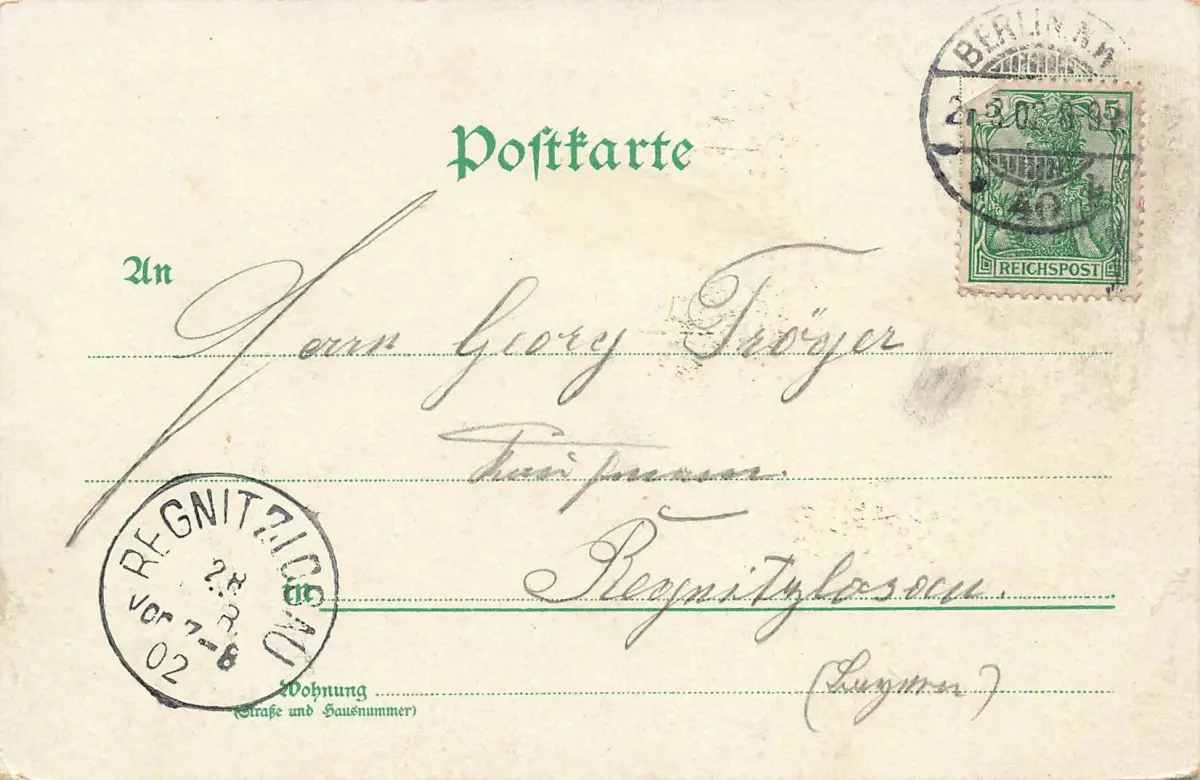 Postkarte
BERLIN N.W.
5 5
2 .3.02.8-9
40 k
REICHSPOST
An
Herrn Georg Tröger
Kaufmann.
in Regnitzlosau.
REGNITZLOSAU
28
3
Vor 7-8
02
Wohnung
(Straße und Hausnummer)
(Bayern)